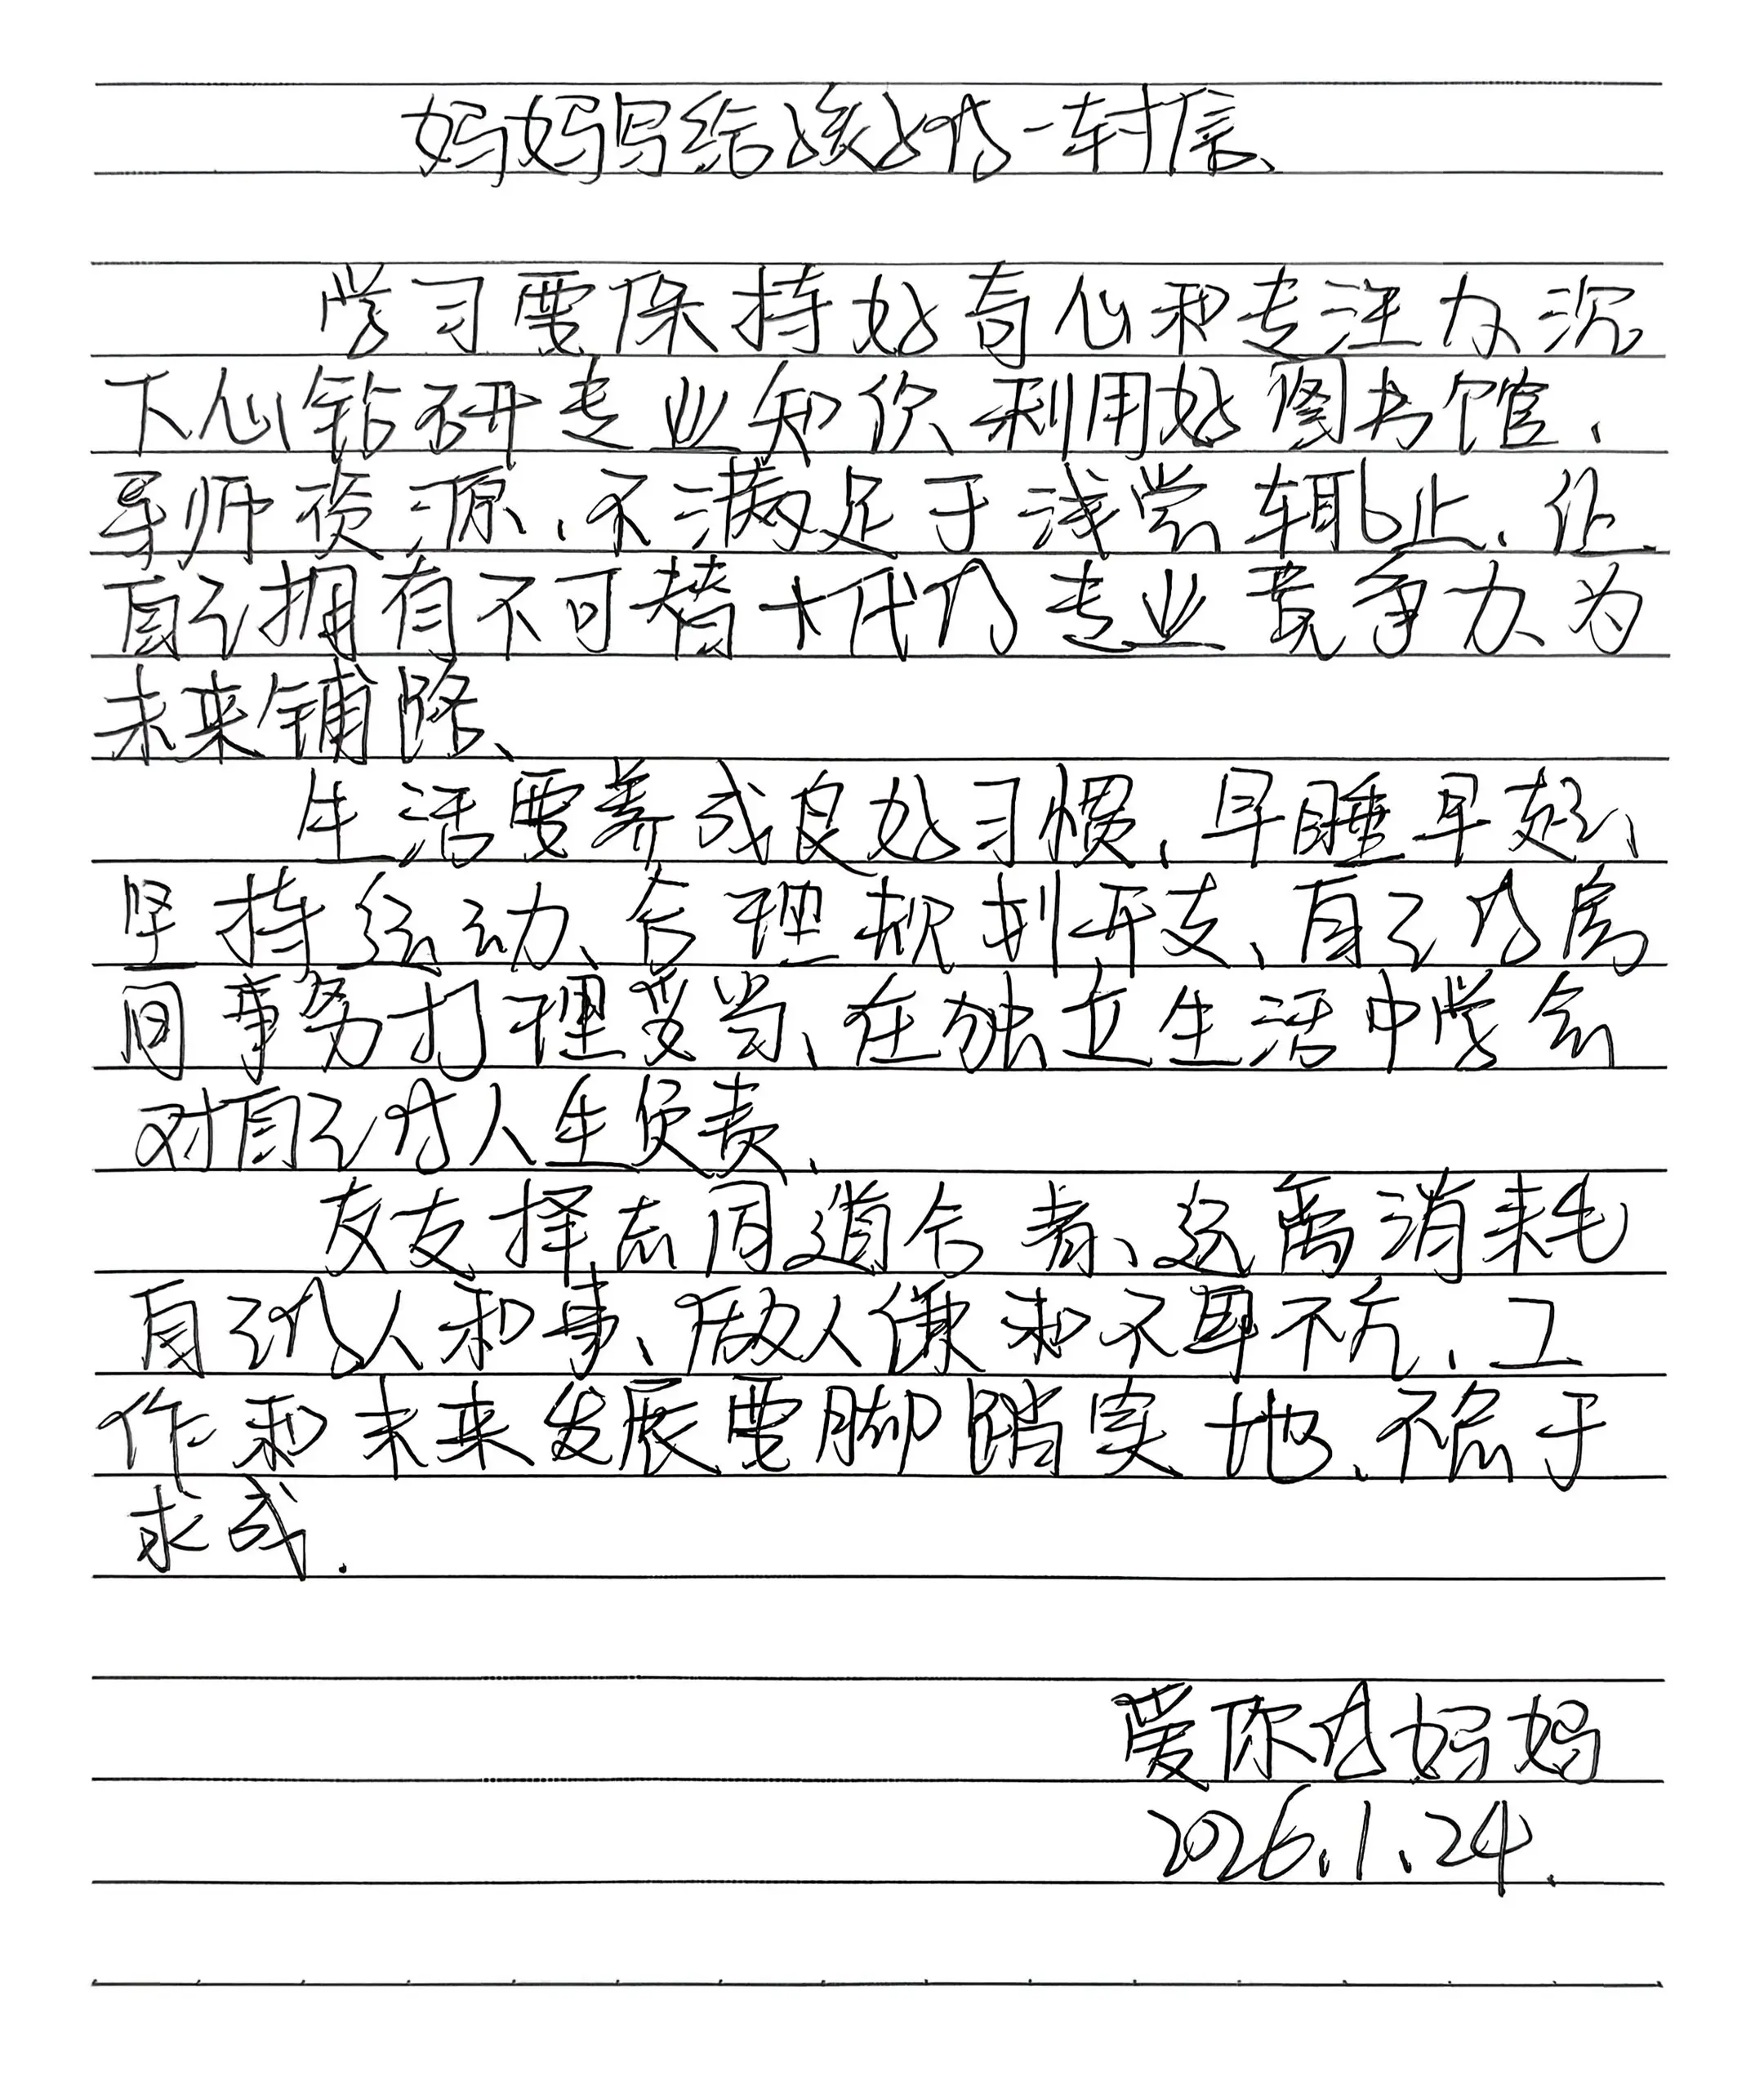 妈妈写给孩子的一封信、
学习要保持好奇心和专注力沉
下心钻研专业知识利用好图书馆、
导师资源、不满足于浅尝辄止、让
自己拥有不可替代的专业竞争力为
未来铺路、
生活要养成良好习惯、早睡早起、
坚持运动、合理规划开支、自己的房
间事务打理妥当、在独立生活中学会
对自己的人生负责、
交友择志同道合者、远离消耗
自己的人和事、做人谦和不卑不亢、工
作和未来发展要脚踏实地、不急于
求成.
爱你的妈妈
2026.1.24.